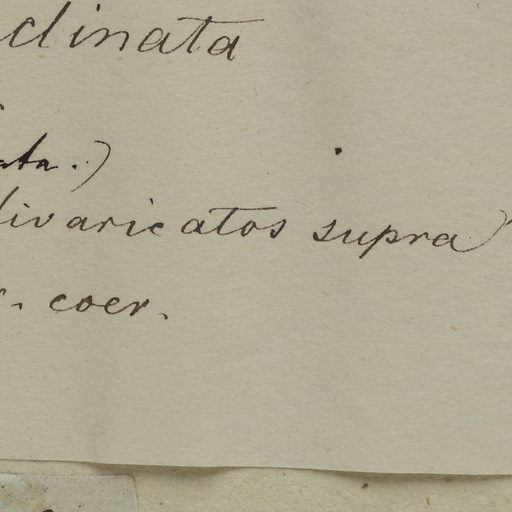 clinata
ata.)
divaricatos supra
r. coer.